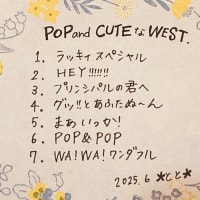 POP and CUTE な WEST.
1. ラッキィスペシャル
2. HEY!!!!!!!
3. プリンシパルの君へ
4. グッ!!とあふたぬ〜ん
5. まあいっか!
6. POP&POP
7. WA!WA!ワンダフル
2025.6 *とと*